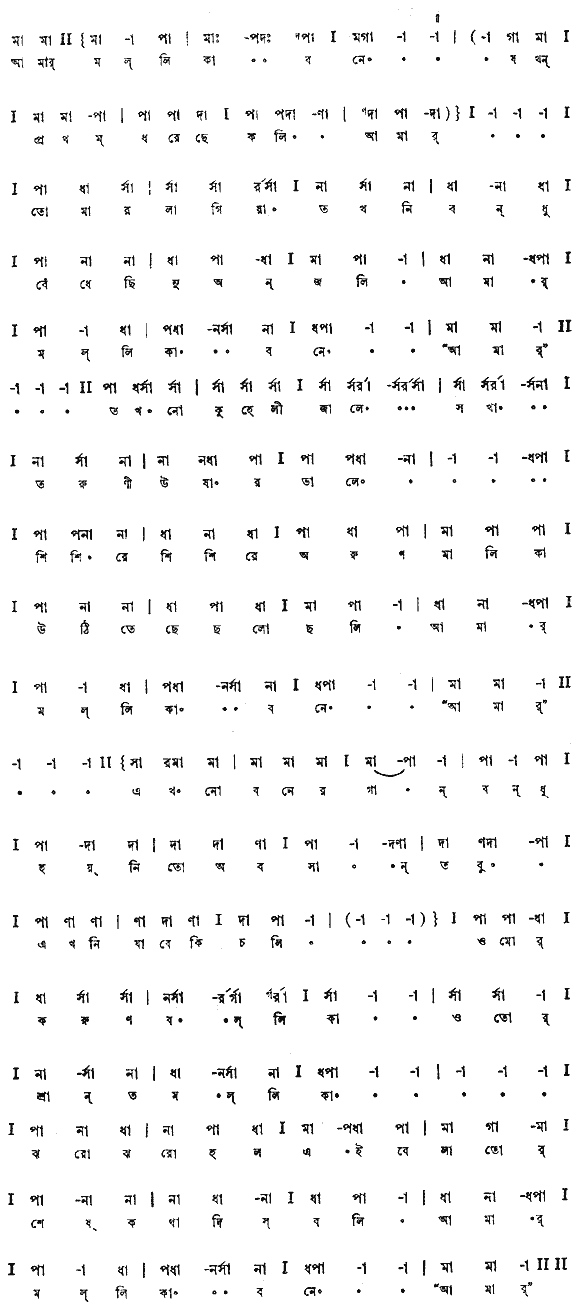 ॥
মা মা II {মা -া পা | মাঃ -পদঃ ণপা I মগা -া -া | (-া গা মা I
আ মার্ ম ল্ লি কা ॰ ॰ ব নে॰ ॰ ॰ ॰ য্ খন্
I মা মা -পা | পা পা দা I পা পদা -ণা | ণদা পা -দা)} I -া -া -া I
প্র থ ম্ ধ রে ছে ক লি॰ ॰ আ মা র্ ॰ ॰ ॰
I পা ধা র্সা | র্সা র্সা র্রর্সা I না র্সা না | ধা -না ধা I
তো মা র লা গি য়া॰ ত খ নি ব ন্ ধু
I পা না না | ধা পা -ধা I মা পা -া | ধা না -ধপা I
বেঁ ধে ছি নু অ ন্ জ লি ॰ আ মা ॰র্
I পা -া ধা | পধা -নর্সা না I ধপা -া -া | মা মা -া II
ম ল্ লি কা॰ ॰॰ ব নে॰ ॰ ॰ "আ মা র্"
-া -া -া II পা ধর্সা র্সা | র্সা র্সা র্সা I র্সা র্সর্রা -র্সর্রর্সা | র্সা র্সর্রা -র্সনা I
॰ ॰ ॰ ত খ॰ নো কু হে লী জা লে॰ ॰॰॰ স খা॰ ॰॰
I না র্সা না | না নধা পা I পা পধা -না | -া -া -ধপা I
ত রু ণী উ ষা॰ র ভা লে॰ ॰ ॰ ॰ ॰॰
I পা পনা না | ধা না ধা I পা ধা পা | মা পা পা I
শি শি॰ রে শি শি রে অ রু ণ মা লি কা
I পা না না | ধা পা ধা I মা পা -া | ধা না -ধপা I
উ ঠি তে ছে ছ লো ছ লি ॰ আ মা ॰র্
I পা -া ধা | পধা -নর্সা না I ধপা -া -া | মা মা -া II
ম ল্ লি কা॰ ॰॰ ব নে॰ ॰ ॰ "আ মা র্"
-া -া -া II {সা রমা মা | মা মা মা I মা -পা -া | পা -া পা I
॰ ॰ ॰ এ খ॰ নো ব নে র গা ॰ ন্ ব ন্ ধু
I পা -দা দা | দা দা ণা I পা -া -দণা | দা ণদা -পা I
হ য়্ নি তো অ ব সা ॰ ॰ন্ ত বু॰ ॰
I পা ণা ণা | ণা দা ণা I দা পা -া | (-া -া -া)} I পা পা -ধা I
এ খ নি যা বে কি চ লি ॰ ॰ ॰ ॰ ও মো র্
I ধা র্সা র্সা | নর্সা -র্রর্গা র্গর্রা I র্সা -া -া | র্সা র্সা -া I
ক রু ণ ব॰ ॰ল্ লি কা ॰ ॰ ও তো র্
I না -র্সা না | ধা -নর্সা না I ধপা -া -া | -া -া -া I
শ্রা ন্ ত ম ॰ল্ লি কা॰ ॰ ॰ ॰ ॰ ॰
I পা না ধা | না পা ধা I মা -পধপা পা | মা গা -মা I
ঝ রো ঝ রো হ ল এ ॰ই বে লা তো র্
I পা -না না | না ধা -না I ধা পা -া | ধা না -ধপা I
শে ষ্ ক থা দি স্ ব লি ॰ আ মা ॰র্
I পা -া ধা | পধা -নর্সা না I ধপা -া -া | মা মা -া II II
ম ল্ লি কা॰ ॰॰ ব নে॰ ॰ ॰ "আ মা র্"